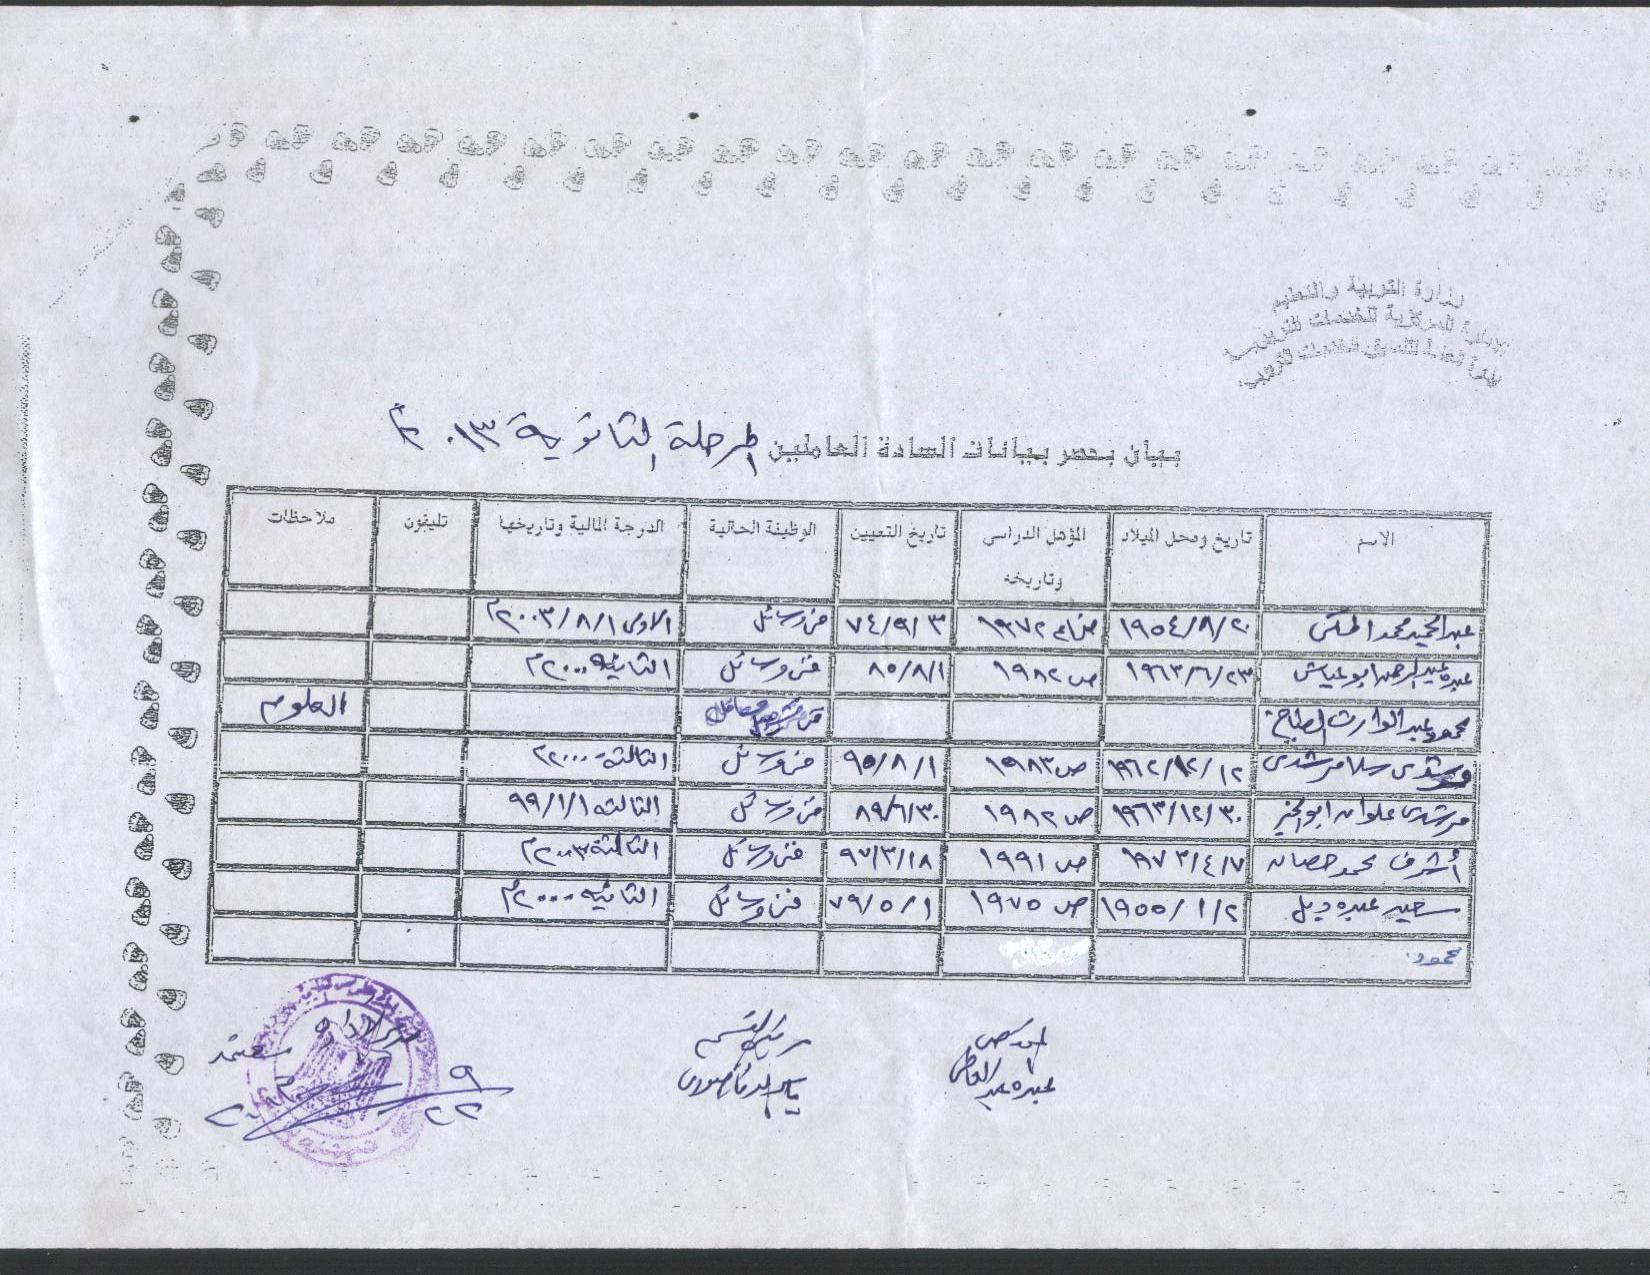 وزارة التربية والتعليم
الإدارة المركزية للخدمات التربوية
بيان بحصر بيانات السادة العاملين المرحلة الثانوية ٢٠١٣م
الاسم تاريخ ومحل الميلاد المؤهل الدراسى وتاريخه تاريخ التعيين الوظيفة الحالية الدرجة المالية وتاريخها تليفون ملاحظات
عبد الحميد محمد ١٩٥٤/٨/٢٠ ١٩٧٢ ٧٤/٩/٣ فنى وسائل الاولى ٢٠٠٣/٨/١م
عبده عبد الرحمن ابو عياش ١٩٦٣/٦/٢٣ ص ١٩٨٢ ٨٥/٨/١ فنى وسائل الثانية ٢٠٠٠م
محمود عبد الوارث الطباخ فنى معامل العلوم
رشدى سلامه رشدى ١٩٦٢/١٢/١٢ ص ١٩٨٣ ٩٥/٨/١ فنى وسائل الثالثة ٢٠٠٠م
مرشدى علوان ابو الخير ١٩٦٣/١٢/٣٠ ص ١٩٨٢ ٨٩/٦/٣٠ فنى وسائل الثالثة ٩٩/١/١
أشرف محمد حصان ١٩٧٣/٤/٧ ص ١٩٩١ ٩٧/٣/١٨ فنى وسائل الثالثة ٢٠٠٣م
سمير عبده ١٩٥٥/١/٢ ص ١٩٧٥ ٧٩/٥/١ فنى وسائل الثانية ٢٠٠٠م
محمود
رئيس القسم
يعتمد مدير الادارة